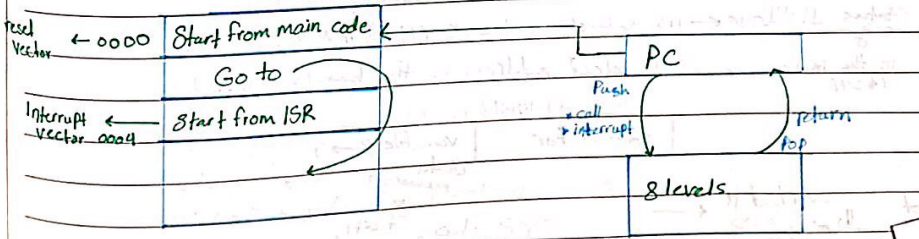 reset
Vector ← 0000
Start from main code
Go to
Interrupt
Vector 0004
Start from ISR
PC
Push
* call
* interrupt
return
Pop
8 levels